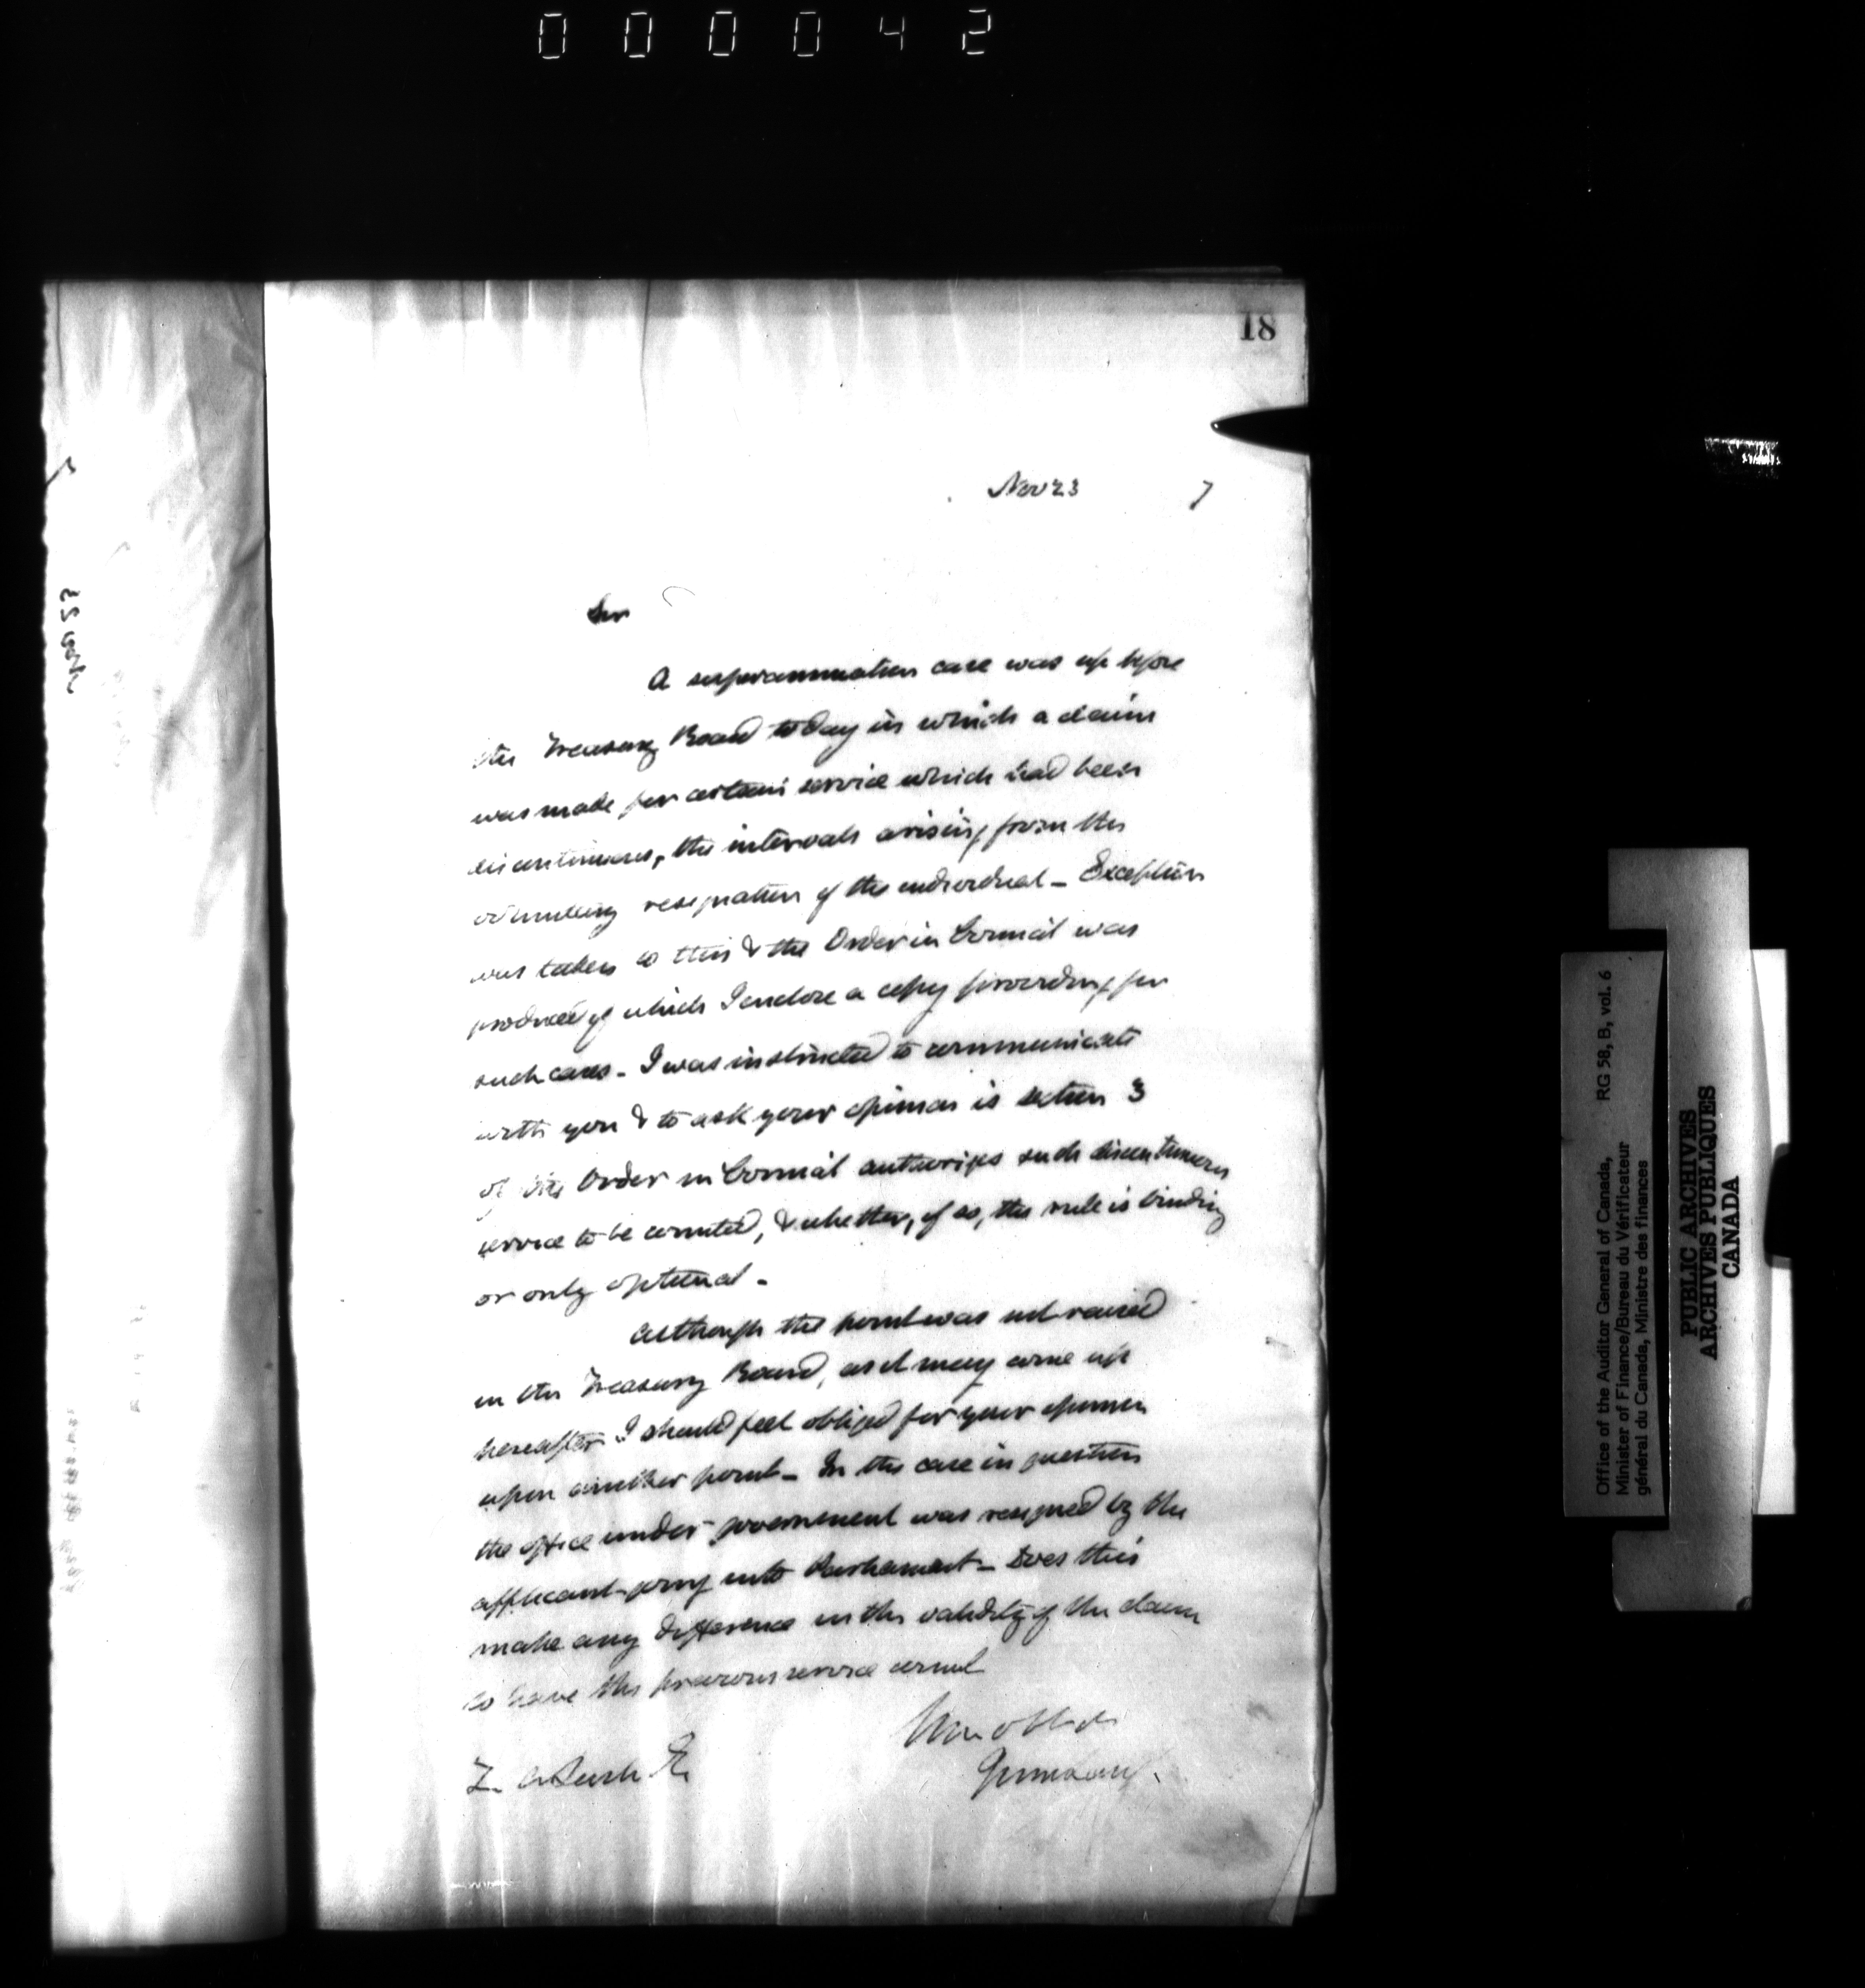 000042
18
Nov 23 7
Sir
A superannuation case was up before
the Treasury Board today in which a claim
was made for certain service which had been
discontinuous, the intervals arising from the
voluntary resignation of the individual - Exception
was taken to this & the Order in Council was
produced of which I enclose a copy providing for
such cases - I was instructed to communicate
with you & to ask your opinion is section 3
of the Order in Council authorizes such discontinuous
service to be counted, & whether, if so, the rule is binding
or only optional -
Although the point was not raised
in the Treasury Board, as it may come up
hereafter I should feel obliged for your opinion
upon another point - In the case in question
the office under government was resigned by the
applicant going into Parliament - Does this
make any difference in the validity of the claim
to have the previous service count
Z. A. Lash
Office of the Auditor General of Canada, RG 58, B, vol. 6
Minister of Finance/Bureau du Vérificateur
général du Canada, Ministre des finances
PUBLIC ARCHIVES
ARCHIVES PUBLIQUES
CANADA